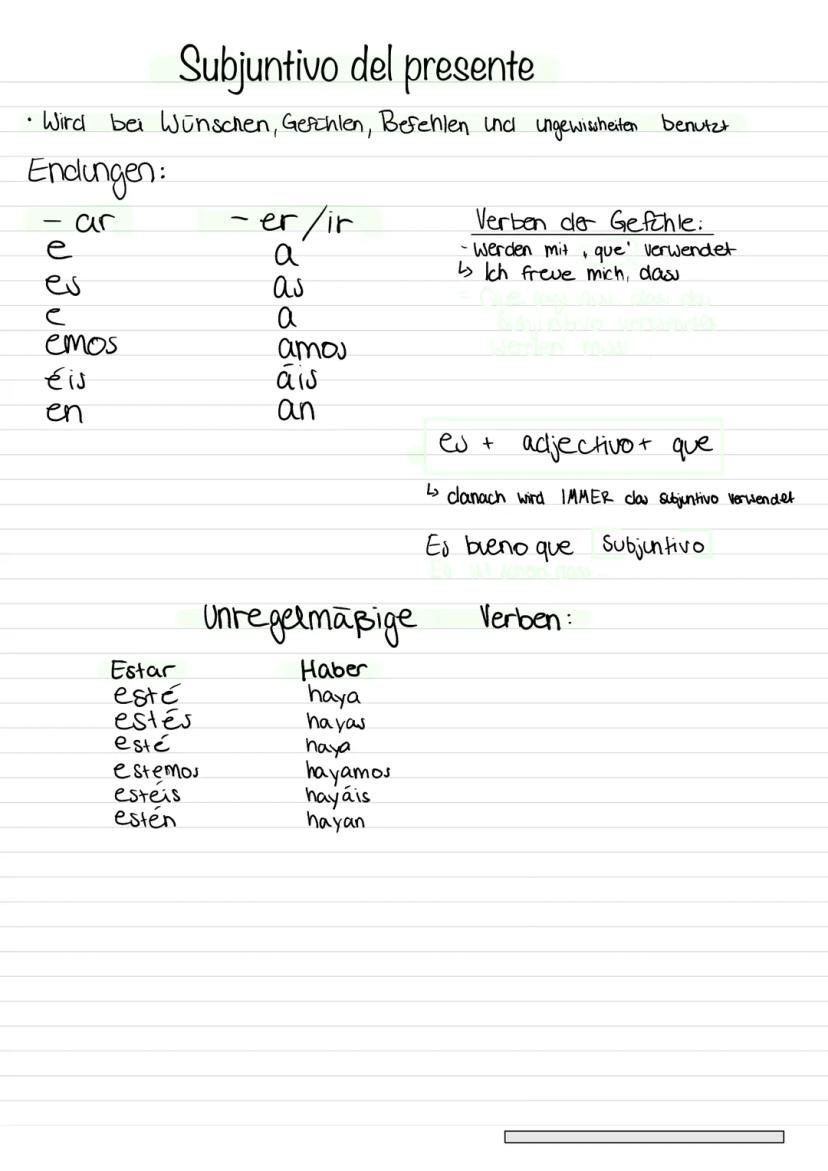 Subjuntivo del presente
· Wird bei Wünschen, Gefühlen, Befehlen und ungewissheiten benutzt
Endungen:
- ar - er/ir
e a
es as
e a
emos amos
éis áis
en an
Verben der Gefühle:
- Werden mit ‚que' verwendet
↳ Ich freue mich, dass
es + adjectivo + que
↳ danach wird IMMER das subjuntivo verwendet
Es bueno que Subjuntivo
Unregelmäßige Verben:
Estar Haber
esté haya
estés hayas
esté haya
estemos hayamos
estéis hayáis
estén hayan